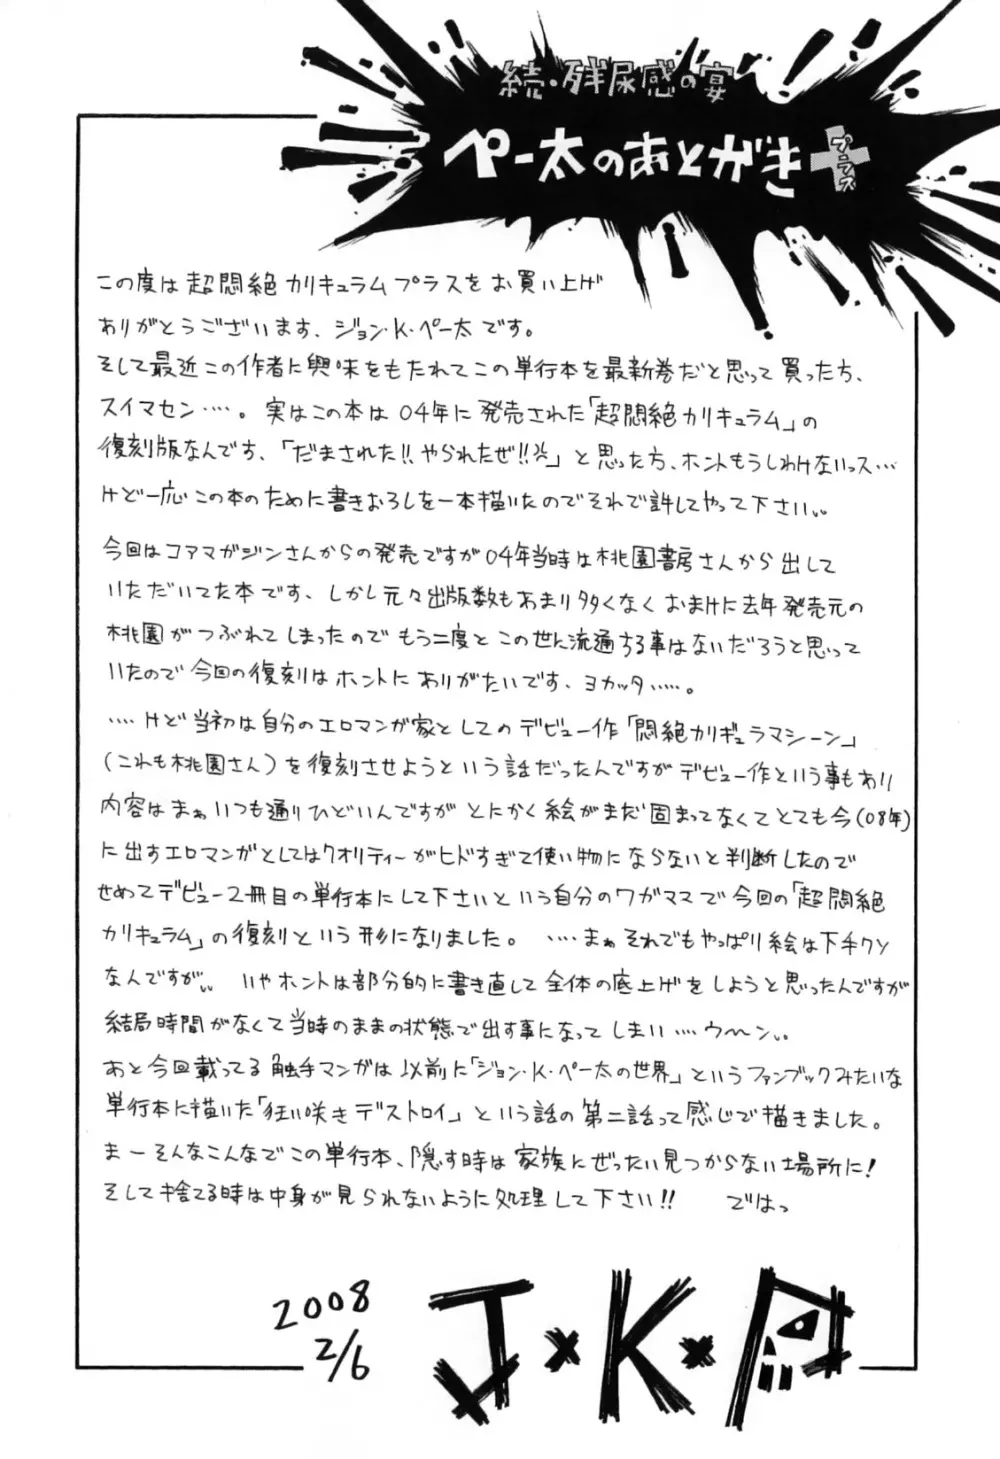 続・残尿感の宴
ペー太のあとがき
プラス
この度は超悶絶カリキュラムプラスをお買い上げ
ありがとうございます、ジョン・K・ペー太です。
そして最近この作者に興味をもたれてこの単行本を最新巻だと思って買ったち、
スイマセン‥‥。実はこの本は04年に発売された「超悶絶カリキュラム」の
復刻版なんです、「だまされた!!やられたぜ!!」と思った方、ホントもうしわけないっス…
けど一応この本のために書きおろしを一本描いたのでそれで許してやって下さい、、
今回はコアマガジンさんからの発売ですが04年当時は桃園書房さんから出して
いただいてた本です、しかし元々出版数もあまり多くなくおまけに去年発売元の
桃園がつぶれてしまったのでもう二度とこの世に流通する事はないだろうと思って
いたので今回の復刻はホントにありがたいです、ヨカッタ‥‥。
‥‥けど当初は自分のエロマンガ家としてのデビュー作「悶絶カリギュラマシーン」
(これも桃園さん)を復刻させようという話だったんですがデビュー作という事もあり
内容はまぁいつも通りひどいんですがとにかく絵がまだ固まってなくてとても今(08年)
に出すエロマンガとしてはクオリティーがヒドすぎて使い物にならないと判断したので
せめてデビュー2冊目の単行本にして下さいという自分のワガママで今回の「超悶絶
カリキュラム」の復刻という形になりました。‥‥まぁそれでもやっぱり絵は下手クソ
なんですが、、いやホントは部分的に書き直して全体の底上げをしようと思ったんですが
結局時間がなくて当時のままの状態で出す事になってしまい‥‥ウ〜ン、、
あと今回載ってる触手マンガは以前に「ジョン・K・ペー太の世界」というファンブックみたいな
単行本に描いた「狂い咲きデストロイ」という話の第二話って感じで描きました。
まーそんなこんなでこの単行本、隠す時は家族にぜったい見つからない場所に!
そして捨てる時は中身が見られないように処理して下さい!! ではっ
2008
2/6
J・K・P